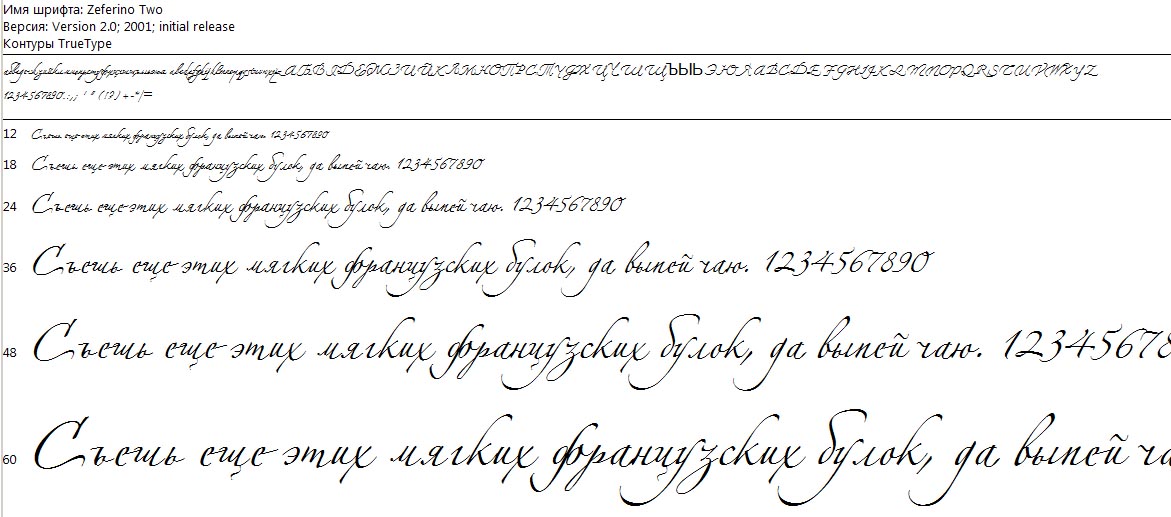 Имя шрифта: Zeferino Two
Версия: Version 2.0; 2001; initial release
Контуры TrueType
АБВГДЕЖЗИЙКЛМНОПРСТУФХЦЧШЩЪЫЬЭЮЯABCDEFGHIJKLMNOPQRSTUVWXYZ
1234567890.:,; ' " (!?) +-*/=
12 Съешь еще этих мягких французских булок, да выпей чаю. 1234567890
18 Съешь еще этих мягких французских булок, да выпей чаю. 1234567890
24 Съешь еще этих мягких французских булок, да выпей чаю. 1234567890
36 Съешь еще этих мягких французских булок, да выпей чаю. 1234567890
48 Съешь еще этих мягких французских булок, да выпей чаю. 12345678
60 Съешь еще этих мягких французских булок, да выпей ча